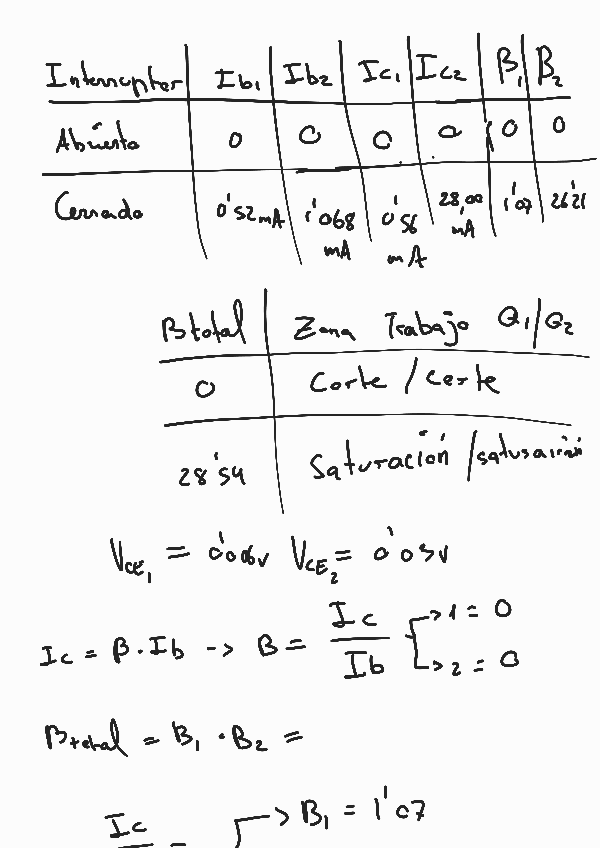 Interruptor Ib1 Ib2 Ic1 Ic2 β1 β2
Abierto 0 0 0 0 0 0
Cerrado 0'52 mA 1'068 mA 0'56 mA 28,00 mA 1'07 26'21
β total Zona Trabajo Q1/Q2
0 Corte / Corte
28'54 Saturación / saturación
VCE1 = 0'006v VCE2 = 0'03v
Ic = β · Ib -> β = Ic / Ib -> 1 = 0
-> 2 = 0
βtotal = β1 · β2 =
Ic = -> β1 = 1'07